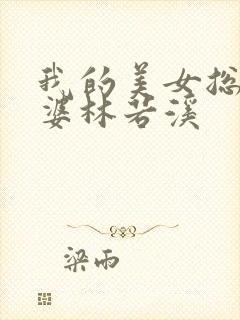 我的美女总
婆林若溪
梁雨